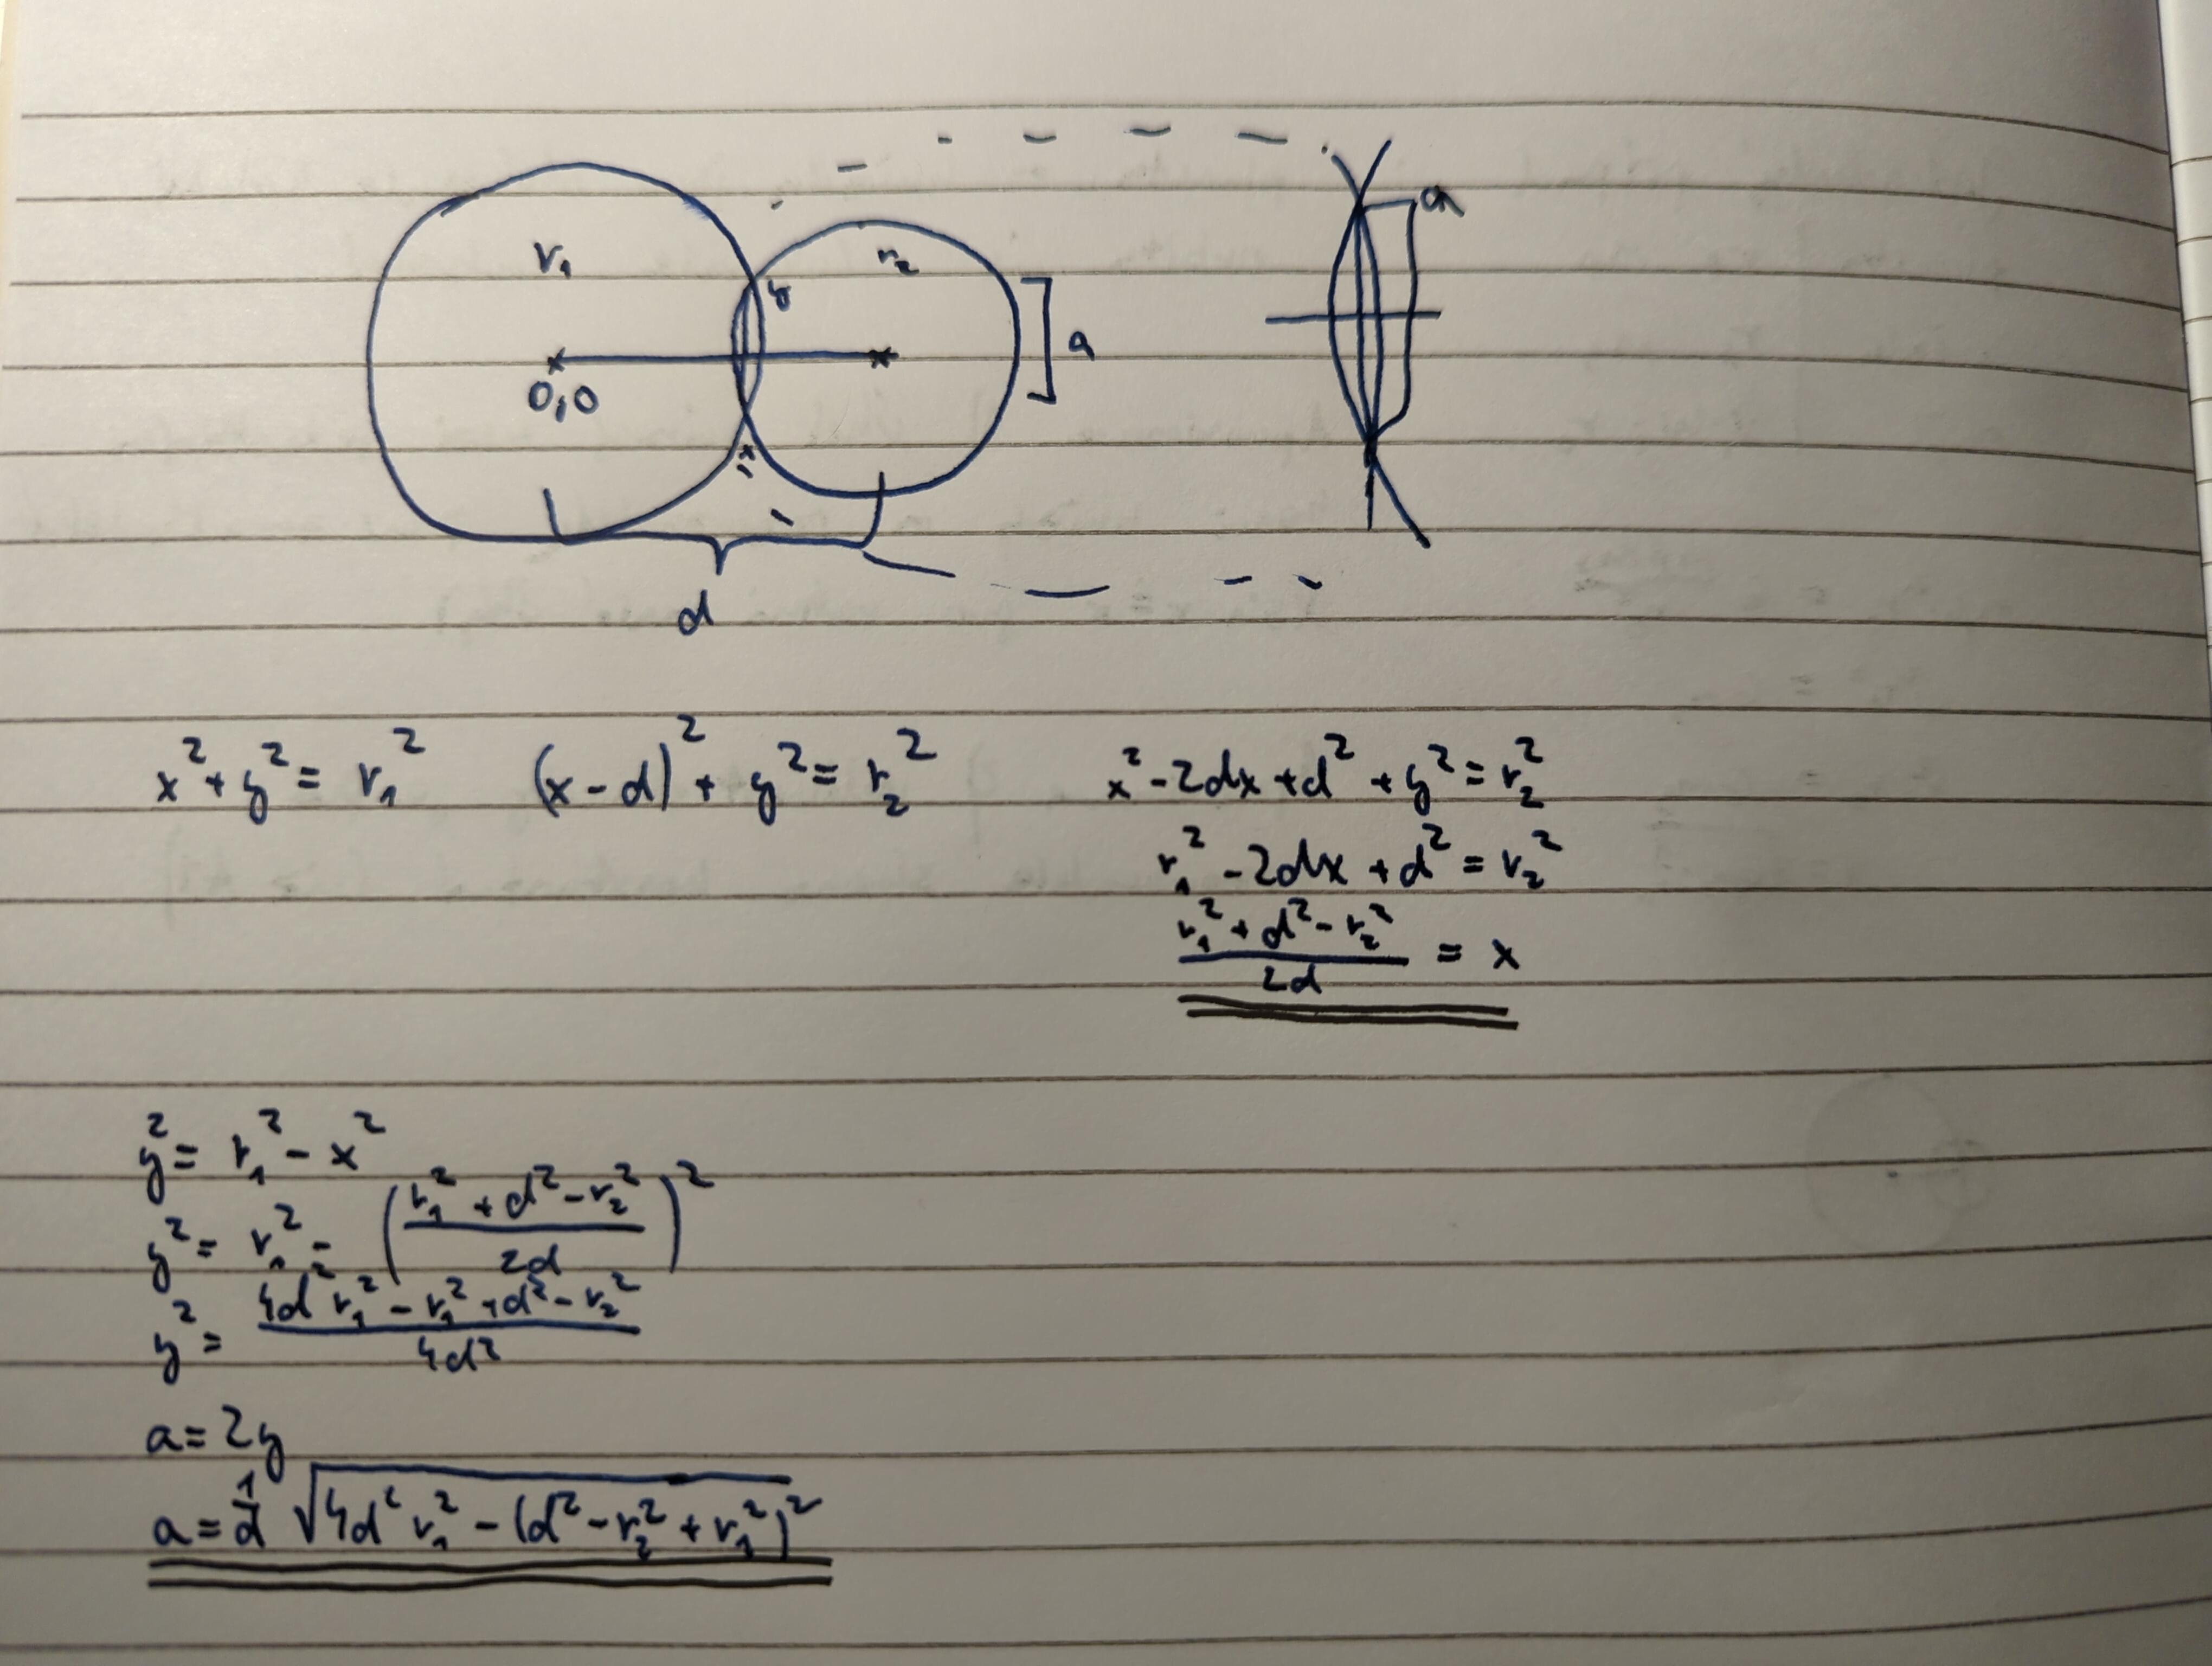 r₁
r₂
a
y
a
0,0
x
d
x² + y² = r₁²
(x - d)² + y² = r₂²
x² - 2dx + d² + y² = r₂²
r₁² - 2dx + d² = r₂²
(r₁² + d² - r₂²)/2d = x
y² = r₁² - x²
y² = r₁² - ((r₁² + d² - r₂²)/2d)²
y² = (4d² r₁² - r₁² + d² - r₂²)/4d²
a = 2y
a = 1/d √(4d² r₁² - (d² - r₂² + r₁²)²)